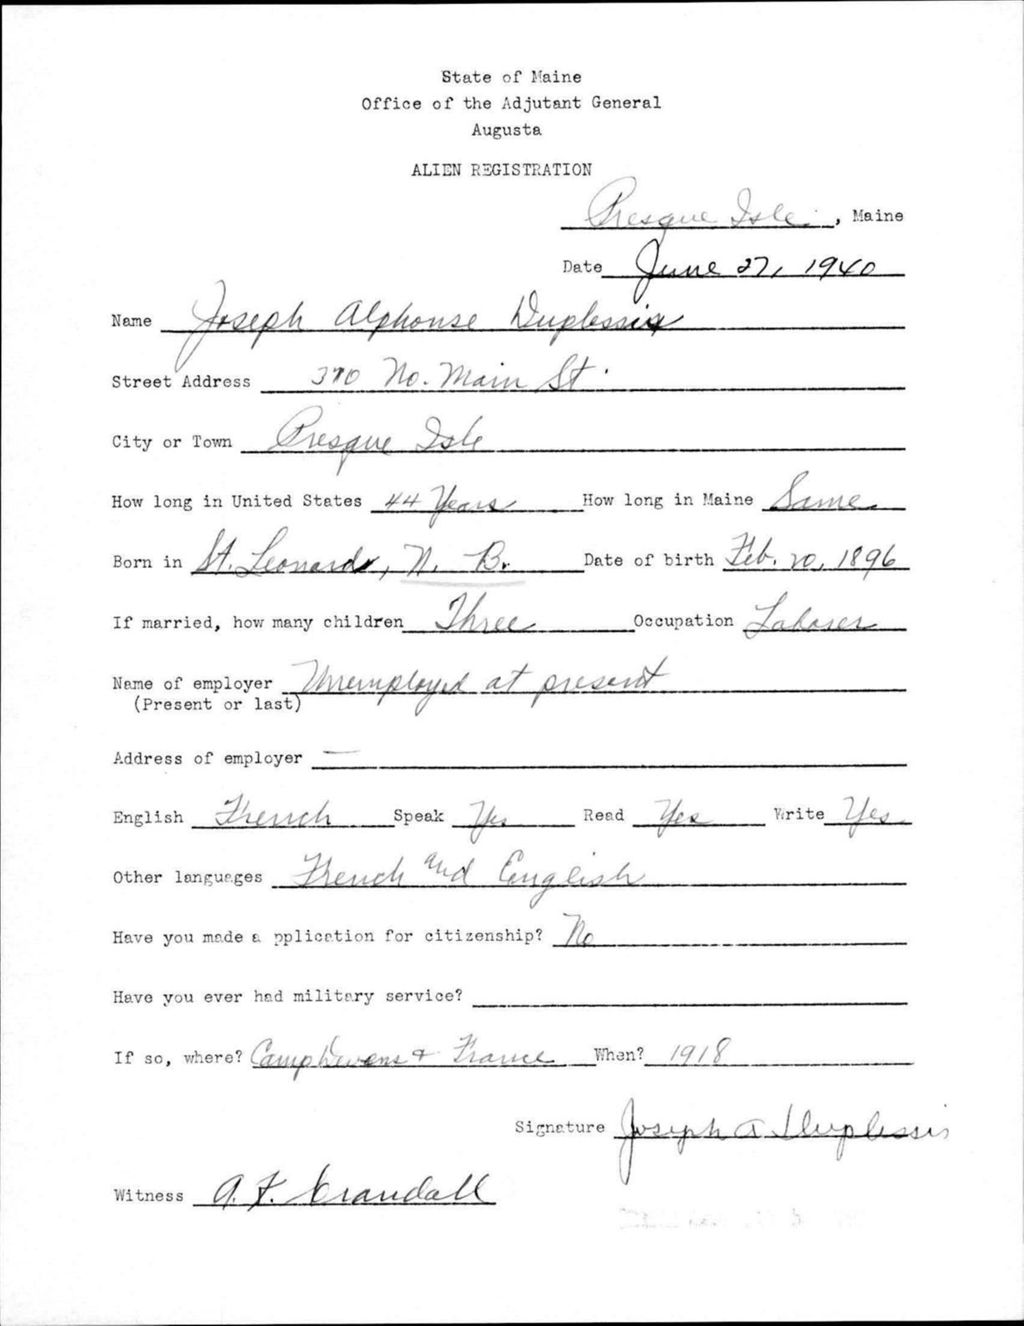 State of Maine
Office of the Adjutant General
Augusta
ALIEN REGISTRATION
Presque Isle, Maine
Date June 27, 1940
Name Joseph Alphonse Duplessis
Street Address 370 No. Main St.
City or Town Presque Isle
How long in United States 44 Years How long in Maine Same
Born in St. Leonards, N. B. Date of birth Feb. 20, 1896
If married, how many children Three Occupation Laborer
Name of employer Unemployed at present
(Present or last)
Address of employer —
English French Speak Yes Read Yes Write Yes
Other languages French and English
Have you made a pplication for citizenship? No
Have you ever had military service?
If so, where? Camp Devens & France When? 1918
Signature Joseph A Duplessis
Witness A. F. Crandall